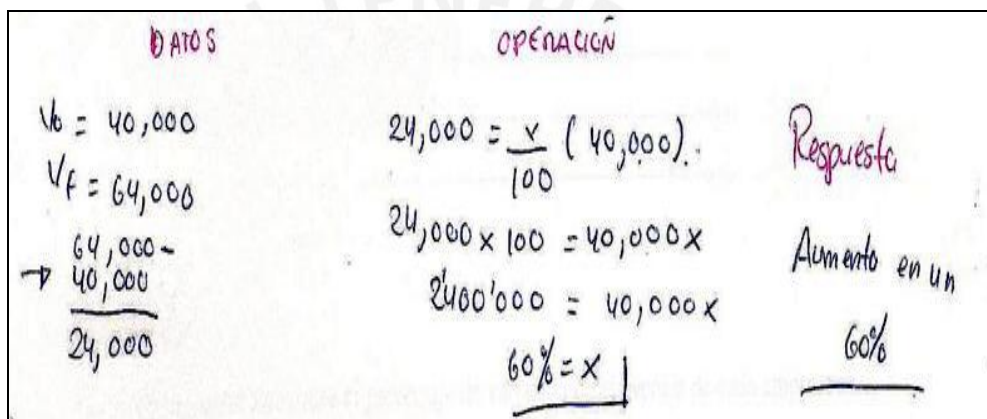 DATOS
Vo = 40,000
Vf = 64,000
64,000 -
→ 40,000
24,000
OPERACIÓN
24,000 = x/100 (40,000).
24,000 x 100 = 40,000x
2'400'000 = 40,000x
60% = x
Respuesta
Aumento en un
60%